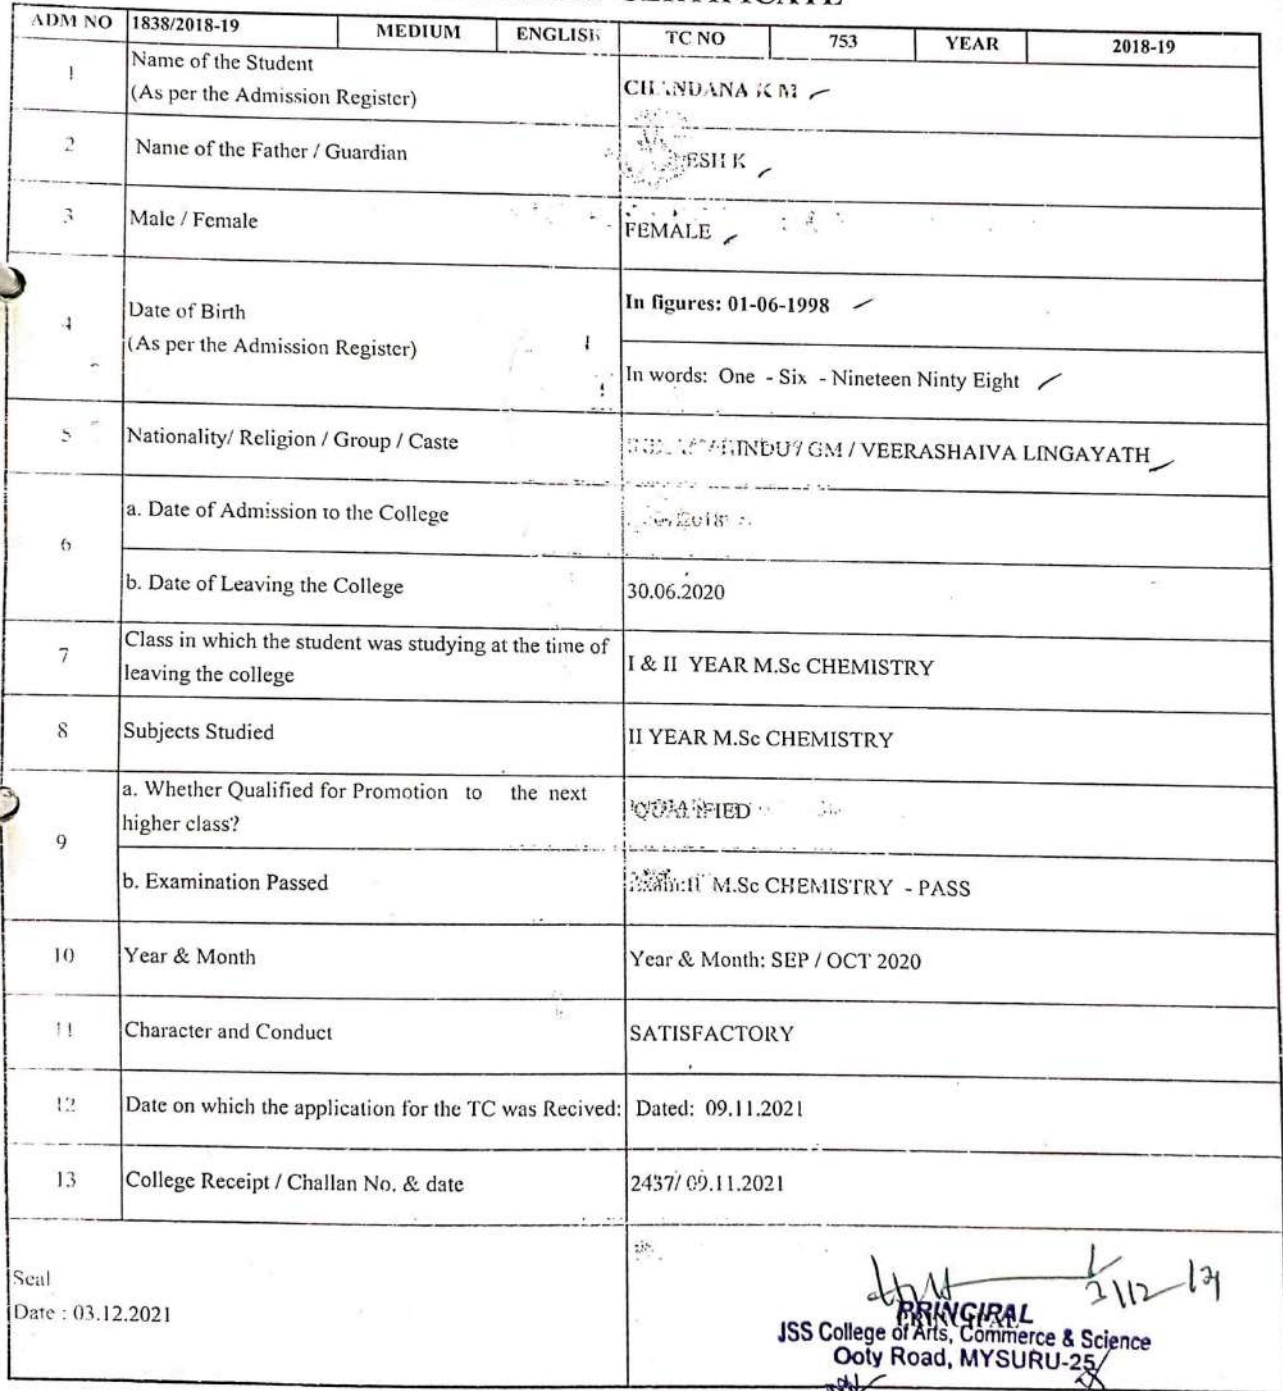 CERTIFICATE
ADM NO 1838/2018-19 MEDIUM ENGLISH TC NO 753 YEAR 2018-19
1 Name of the Student
(As per the Admission Register) CHANDANA K M
2 Name of the Father / Guardian ESH K
3 Male / Female FEMALE
4 Date of Birth
(As per the Admission Register)
In figures: 01-06-1998
In words: One - Six - Nineteen Ninty Eight
5 Nationality/ Religion / Group / Caste HINDU / GM / VEERASHAIVA LINGAYATH
6 a. Date of Admission to the College 2018
b. Date of Leaving the College 30.06.2020
7 Class in which the student was studying at the time of
leaving the college I & II YEAR M.Sc CHEMISTRY
8 Subjects Studied II YEAR M.Sc CHEMISTRY
9 a. Whether Qualified for Promotion to the next
higher class? QUALIFIED
b. Examination Passed M.Sc CHEMISTRY - PASS
10 Year & Month Year & Month: SEP / OCT 2020
11 Character and Conduct SATISFACTORY
12 Date on which the application for the TC was Recived: Dated: 09.11.2021
13 College Receipt / Challan No. & date 2437/ 09.11.2021
Seal
Date : 03.12.2021
PRINCIPAL
JSS College of Arts, Commerce & Science
Ooty Road, MYSURU-25